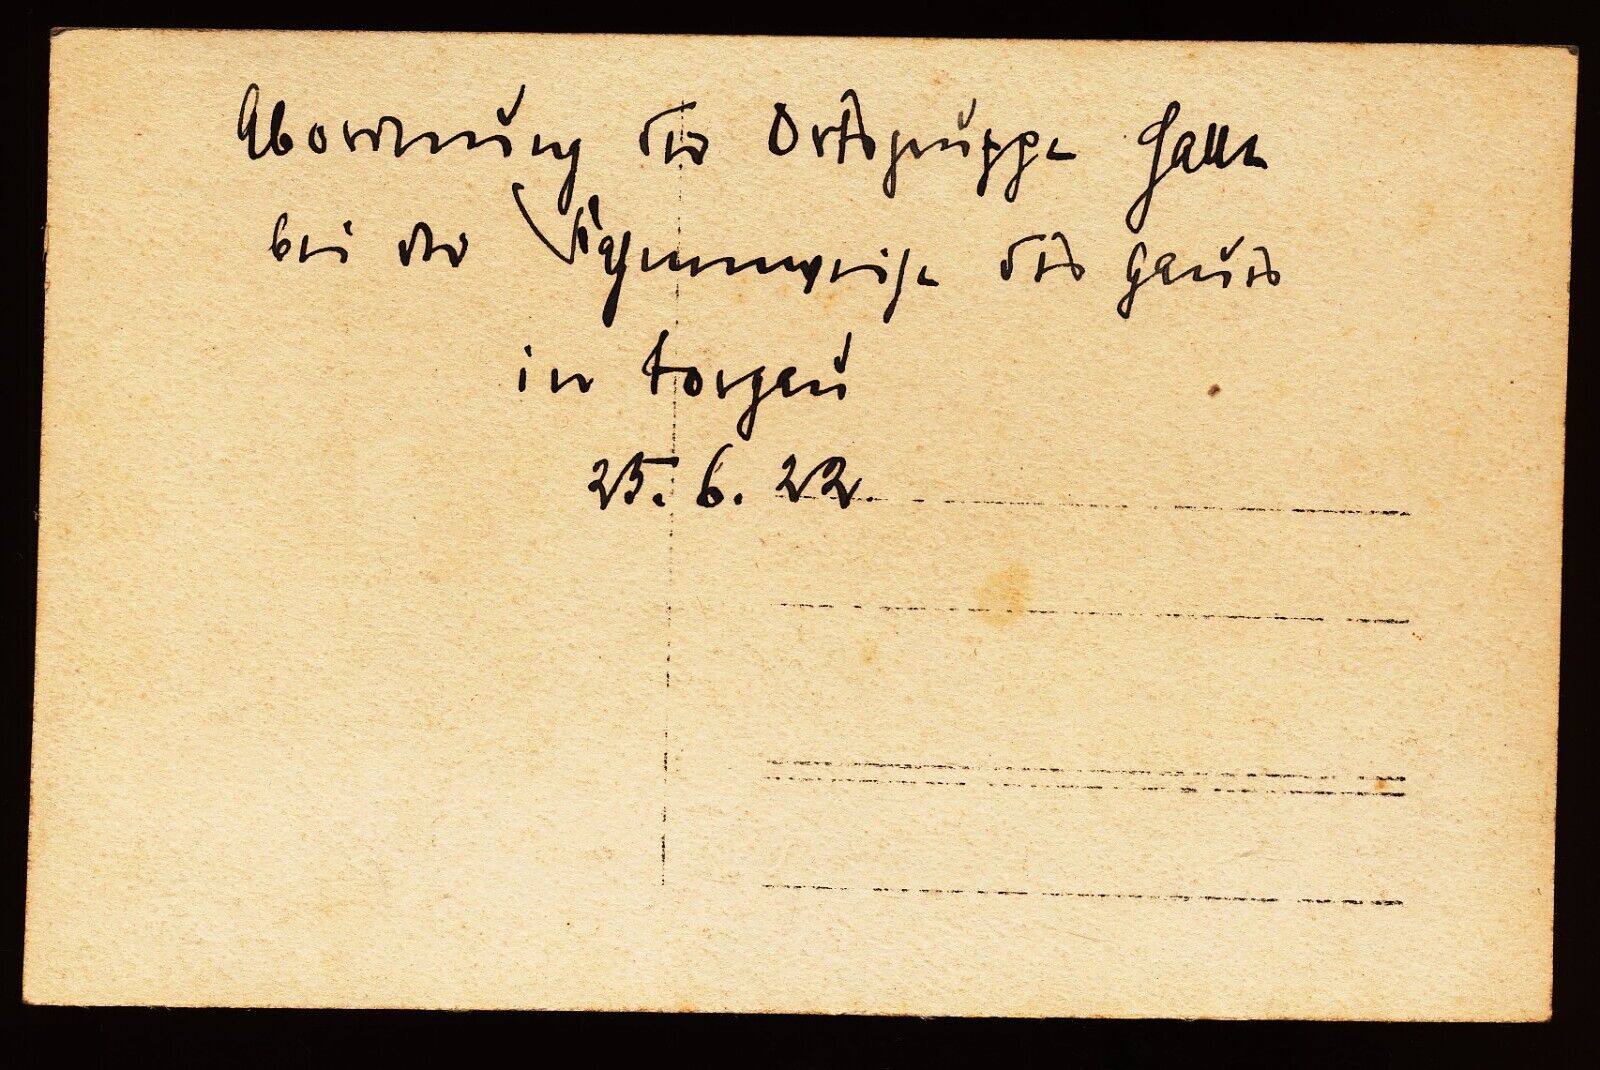 Abordnung der Ortsgruppe Halle
bei der Fahnenweihe des Gaues
in Torgau
25. 6. 22.